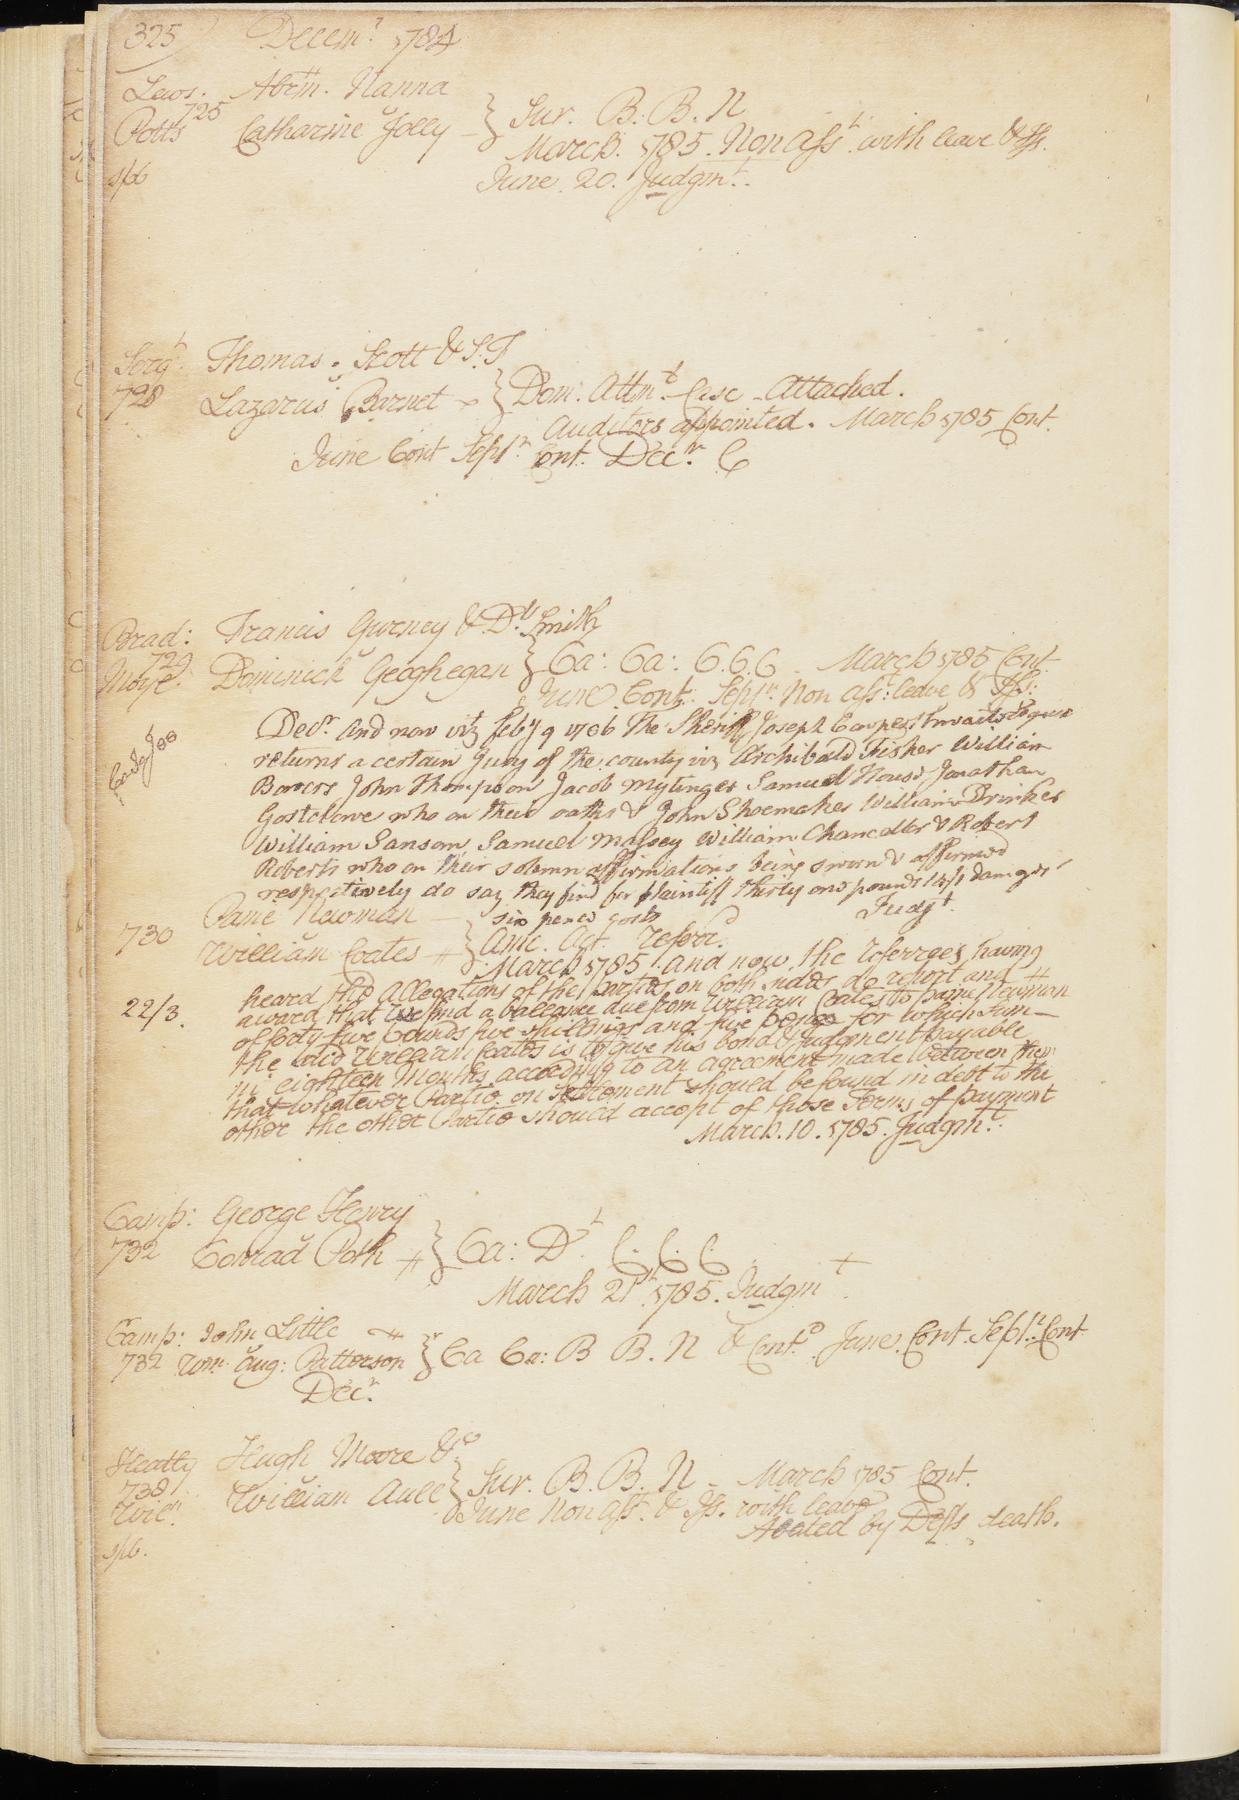 325 Decemr. 1784
Lews. Abrm. Hanna
Potts 725 Catharine Jolly } Sur. B. B. N
March. 1785. Non Asst. with leave & Iss.
s/6 June. 20. Judgmt.
Sergt. Thomas Scott & S. F
728 Lazarus Barnet } Dom. Attmt. Case Attached.
Auditors appointed. March 1785 Cont.
June Cont Septr. Cont. Decr. C
Brad: Francis Gurney & Dl. Smith
729 Moyl. Dominick Geoghegan } Ca: Ca: C. C. C March 1785 Cont.
June Cont: Septr. Non Ass: leave & Iss:
Decr. And now viz Feby 9 1786 The Sheriff Joseph Cowperthwaite Esqur
returns a certain Jury of the county viz Archibald Fisher William
Bowers John Thompson Jacob Mytinger Samuel House Jonathan
Gostelowe who on their oaths & John Shoemaker William Drinker
William Sansom, Samuel Massey William Chancellor & Robert
Roberts who on their solemn affirmations being sworn & affirmed
respectively do say they find for plaintiff thirty one pounds damages
six pence costs Judgt.
Pame Newman
730 William Coates } Amc. Act. Referrd
March 1785 And now the Referrees having
heard the Allegations of the Parties on both sides do report and
22/3. award that we find a ballance due from William Coates to Pame Newman
of forty five Pounds five shillings and five pence for which sum
the said William Coates is to give his bond & Judgment payable
in eighteen Months according to an agreement made between them
that whatever Partie on settlement should be found in debt to the
other the other Partie should accept of those Terms of payment
March. 10. 1785. Judgmt.
Camp: George Henry
732 Conrad Poth } Ca: Dt. C. C. C
March 21st. 1785. Judgmt.
Camp: John Little
732 Wm. Aug: Patterson } Ca Ca: B B. N & Contd. June Cont. Septr. Cont
Decr.
Heatly Hugh Moore &c
738 William Aull } Sur. B. B. N March 1785 Cont.
Wil. June Non Asst. & Iss. with leave
s/6. Abated by Defts death.